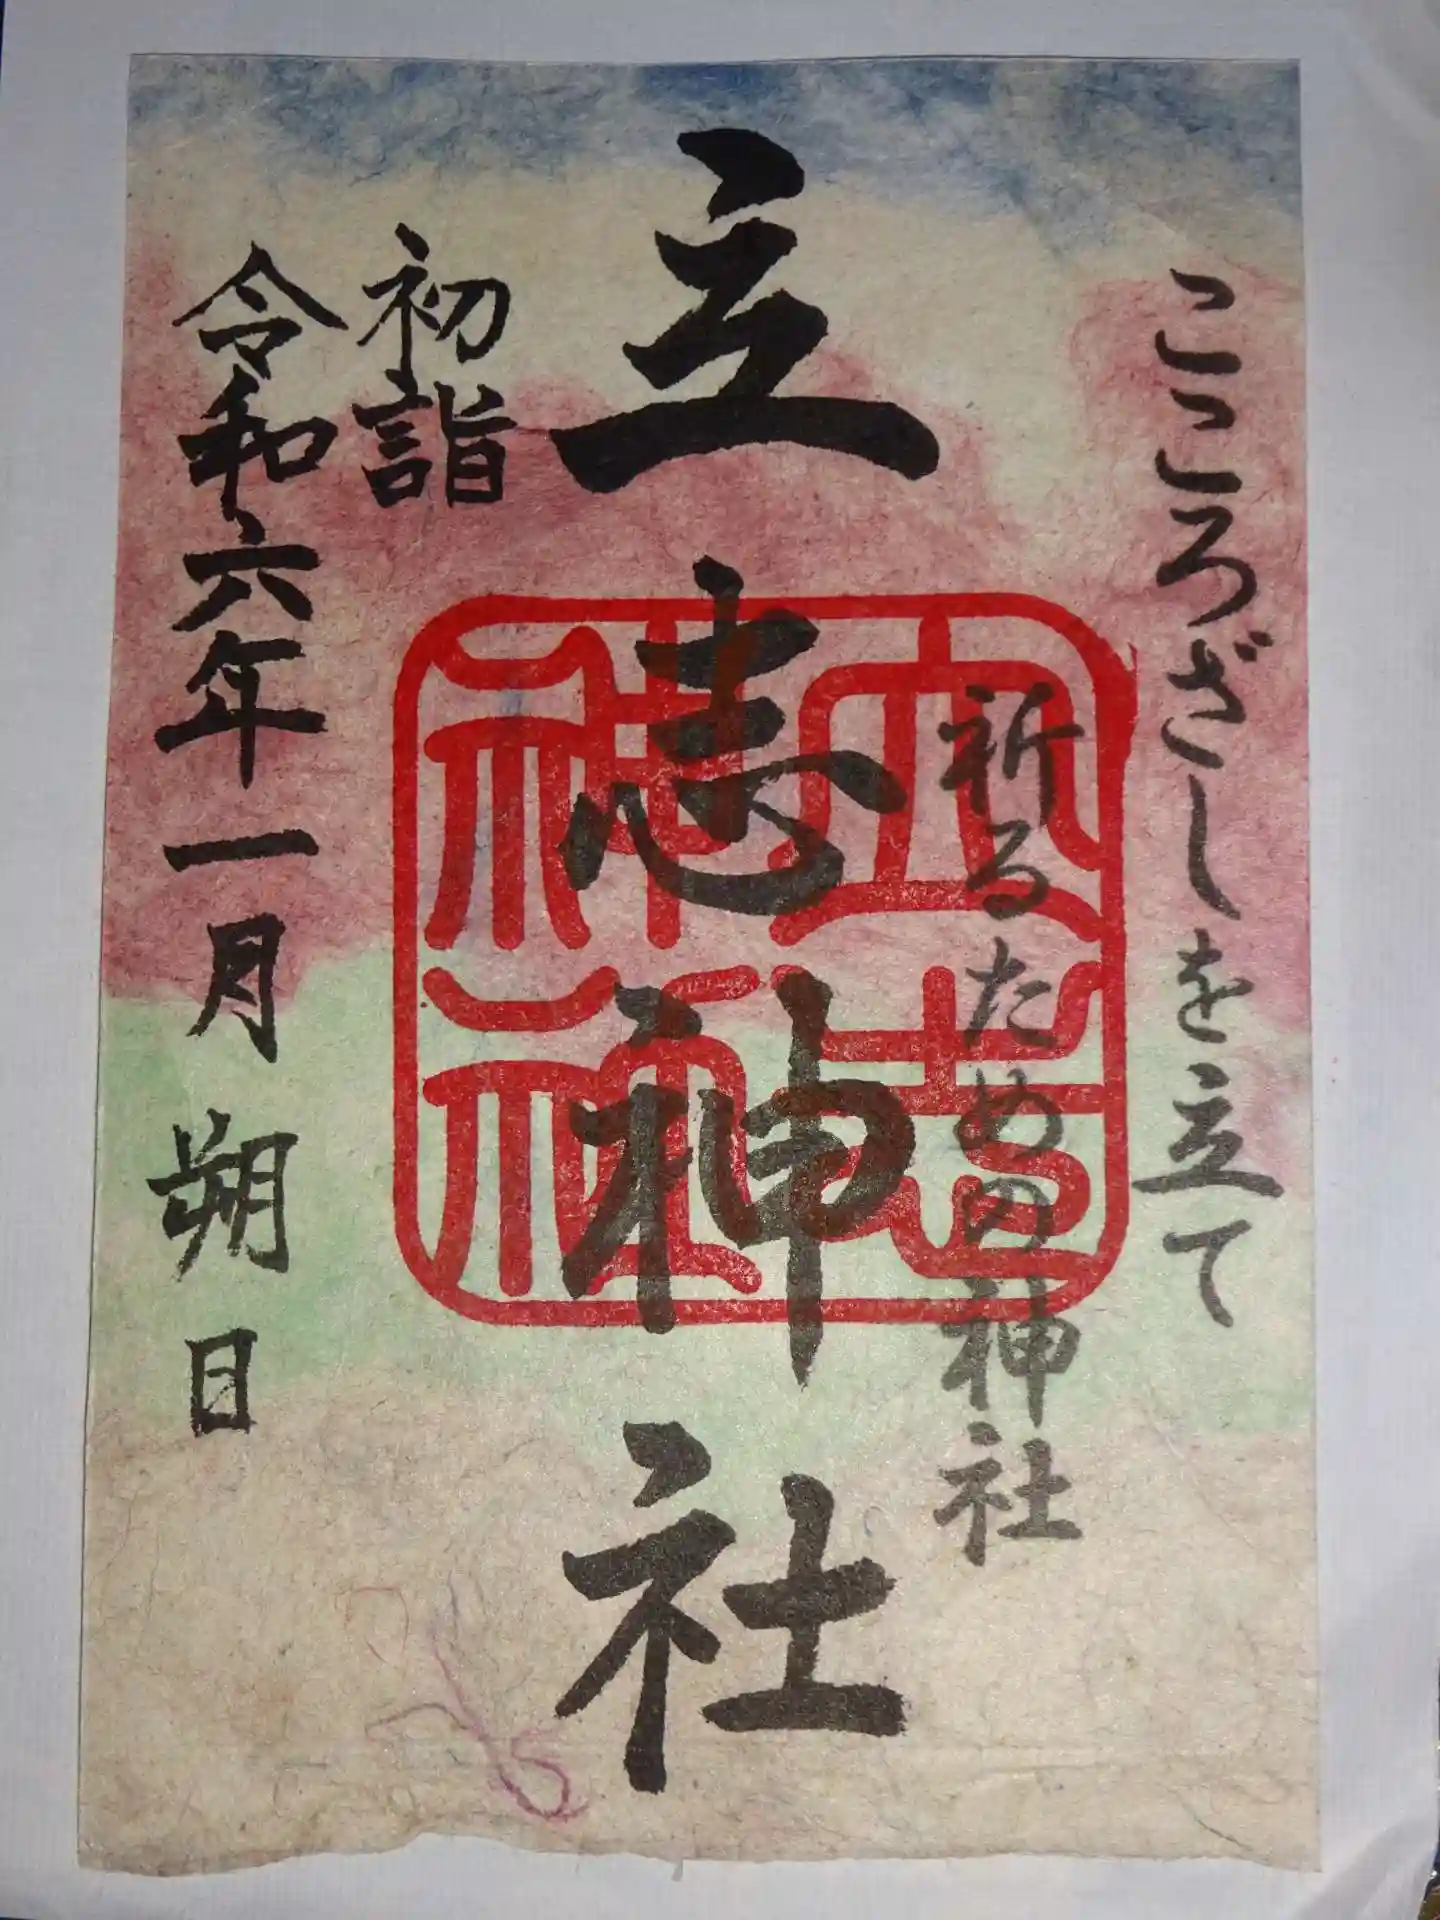 こころざしを立て
祈るための神社
立志神社
立志
神社
初詣
令和六年一月朔日